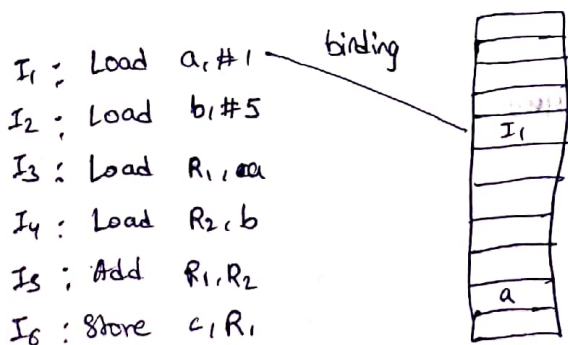 I1 : Load a, #1 binding
I2 : Load b, #5
I1
I3 : Load R1, a
I4 : Load R2, b
I5 : Add R1, R2
a
I6 : Store c, R1